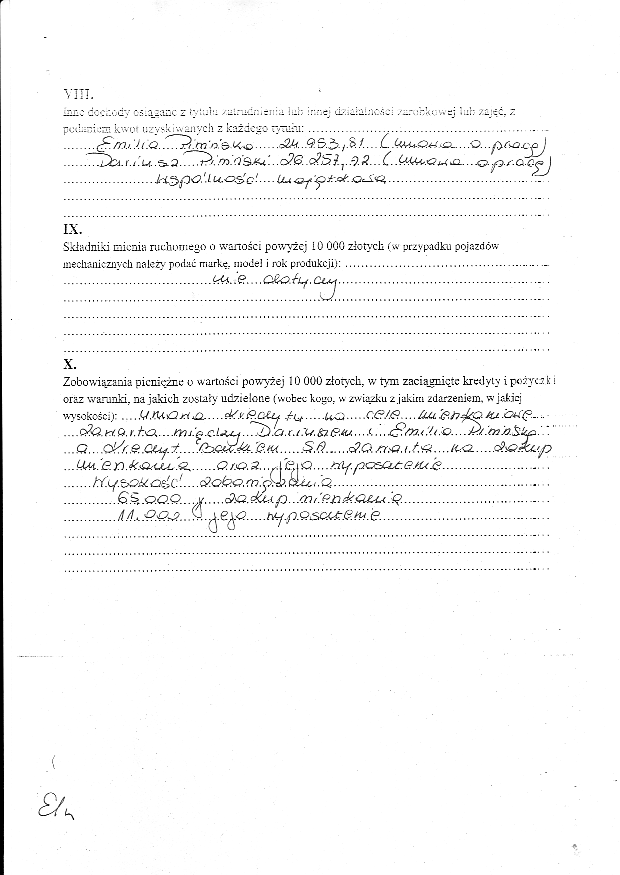 VIII.
Inne dochody osiągane z tytułu zatrudnienia lub innej działalności zarobkowej lub zajęć, z
podaniem kwot uzyskiwanych z każdego tytułu:
Emilia Pimńska 24.953,81 (umowa o pracę)
Dariusz Pimński 26 257,92 (umowa o pracę)
wspólność majątkowa
IX.
Składniki mienia ruchomego o wartości powyżej 10 000 złotych (w przypadku pojazdów
mechanicznych należy podać markę, model i rok produkcji):
nie dotyczy
X.
Zobowiązania pieniężne o wartości powyżej 10 000 złotych, w tym zaciągnięte kredyty i pożyczki
oraz warunki, na jakich zostały udzielone (wobec kogo, w związku z jakim zdarzeniem, w jakiej
wysokości): umowa kredytu na cele mieszkaniowe
zawarta między Dariuszem i Emilią Pimńską
a Kredyt Bankiem SA zawarta na zakup
mieszkania oraz jego wyposażenie
Wysokość zobowiązania
65.000 zakup mieszkania
11.000 jego wyposażenie